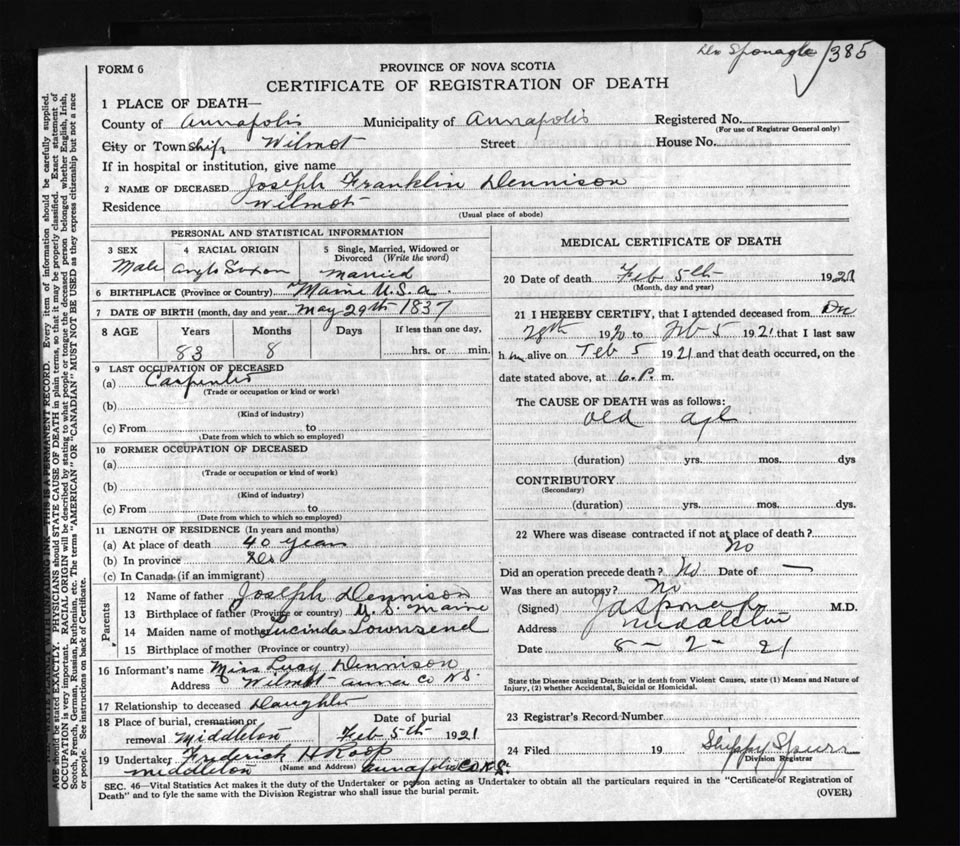 Dr Sponagle 385
FORM 6
PROVINCE OF NOVA SCOTIA
CERTIFICATE OF REGISTRATION OF DEATH
1 PLACE OF DEATH—
County of Annapolis Municipality of Annapolis Registered No.
(For use of Registrar General only)
City or Township Wilmot Street House No.
If in hospital or institution, give name
2 NAME OF DECEASED Joseph Franklin Dennison
Residence Wilmot
(Usual place of abode)
PERSONAL AND STATISTICAL INFORMATION
3 SEX 4 RACIAL ORIGIN 5 Single, Married, Widowed or Divorced (Write the word)
Male Anglo Saxon Married
6 BIRTHPLACE (Province or Country) Maine U.S.A.
7 DATE OF BIRTH (month, day and year) May 29th 1837
8 AGE Years Months Days If less than one day,
83 8 hrs. or min.
9 LAST OCCUPATION OF DECEASED
(a) Carpenter
(Trade or occupation or kind or work)
(b)
(Kind of industry)
(c) From to
(Date from which to which so employed)
10 FORMER OCCUPATION OF DECEASED
(a)
(Trade or occupation or kind of work)
(b)
(Kind of industry)
(c) From to
(Date from which to which so employed)
11 LENGTH OF RESIDENCE (In years and months)
(a) At place of death 40 years
(b) In province Do
(c) In Canada (if an immigrant)
Parents
12 Name of father Joseph Dennison
13 Birthplace of father (Province or country) U.S. Maine
14 Maiden name of mother Lucinda Townsend
15 Birthplace of mother (Province or country)
16 Informant's name Miss Lucy Dennison
Address Wilmot Anna Co N.S.
17 Relationship to deceased Daughter
18 Place of burial, cremation or Date of burial
removal Middleton Feb 5th 1921
19 Undertaker Fredrick H Roop
(Name and Address)
Middleton Annapolis Co N.S.
MEDICAL CERTIFICATE OF DEATH
20 Date of death Feb 5th 1921
(Month, day and year)
21 I HEREBY CERTIFY, that I attended deceased from Dec
28th 1920 to Feb 5 1921 that I last saw
him alive on Feb 5 1921 and that death occurred, on the
date stated above, at 6. P. m.
The CAUSE OF DEATH was as follows:
old age
(duration) yrs. mos. dys
CONTRIBUTORY
(Secondary)
(duration) yrs. mos. dys.
22 Where was disease contracted if not at place of death?
No
Did an operation precede death? No Date of —
Was there an autopsy? No
(Signed) J A Sponagle M.D.
Address Middleton
Date 8 - 2 - 21
State the Disease causing Death, or in death from Violent Causes, state (1) Means and Nature of
Injury, (2) whether Accidental, Suicidal or Homicidal.
23 Registrar's Record Number
24 Filed 19 Shippy Spurr
Division Registrar
SEC. 46—Vital Statistics Act makes it the duty of the Undertaker or person acting as Undertaker to obtain all the particulars required in the "Certificate of Registration of
Death" and to fyle the same with the Division Registrar who shall issue the burial permit.
(OVER)
THIS IS A PERMANENT RECORD. Every item of information should be carefully supplied.
AGE should be stated EXACTLY. PHYSICIANS should STATE CAUSE OF DEATH in plain terms, so that it may be properly classified. Exact statement of
OCCUPATION is very important. RACIAL ORIGIN will be described by stating to what people or tongue the deceased person belonged whether English, Irish,
Scotch, French, German, Russian, Ruthenian, etc. The terms "AMERICAN" OR "CANADIAN" MUST NOT BE USED as they express citizenship but not a race
or people. See instructions on back of Certificate.